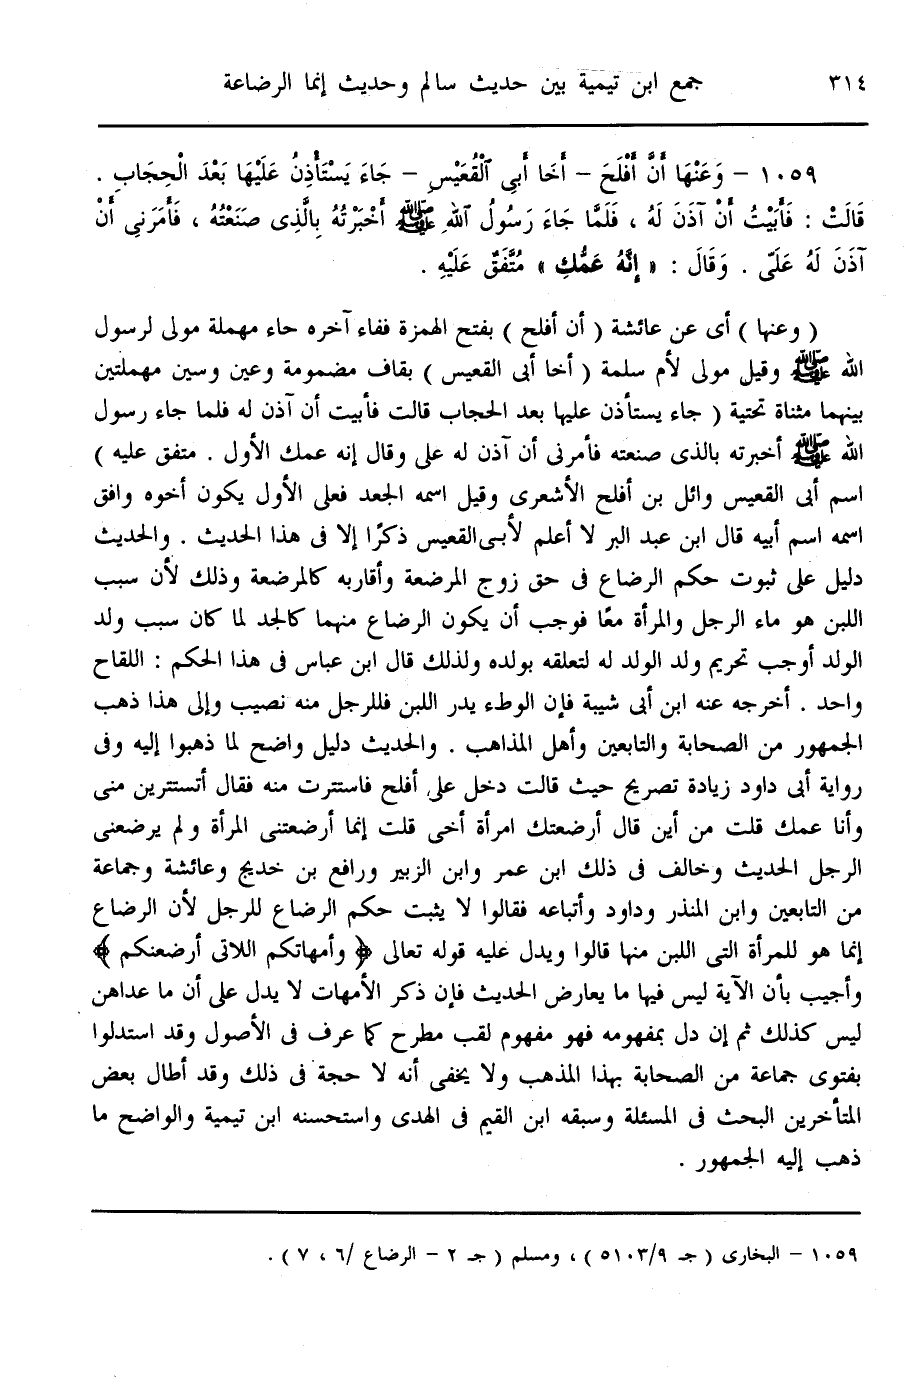 ٣١٤ جمع ابن تيمية بين حديث سالم وحديث إنما الرضاعة
١٠٥٩ – وَعَنْهَا أَنَّ أَفْلَحَ – أَخَا أَبِي ٱلْقُعَيْسِ – جَاءَ يَسْتَأْذِنُ عَلَيْهَا بَعْدَ الْحِجَابِ .
قَالَتْ : فَأَبَيْتُ أَنْ آذَنَ لَهُ ، فَلَمَّا جَاءَ رَسُولُ ٱللهِ ﷺ أَخْبَرْتُهُ بِالَّذِى صَنَعْتُهُ ، فَأَمَرَنِى أَنْ
آذَنَ لَهُ عَلَىَّ . وَقَالَ : « إِنَّهُ عَمُّكِ » مُتَّفَقٌ عَلَيْهِ .
( وعنها ) أى عن عائشة ( أن أفلح ) بفتح الهمزة ففاء آخره حاء مهملة مولى لرسول
الله ﷺ وقيل مولى لأم سلمة ( أخا أبى القعيس ) بقاف مضمومة وعين وسين مهملتين
بينهما مثناة تحتية ( جاء يستأذن عليها بعد الحجاب قالت فأبيت أن آذن له فلما جاء رسول
الله ﷺ أخبرته بالذى صنعته فأمرنى أن آذن له على وقال إنه عمك الأول . متفق عليه )
اسم أبى القعيس وائل بن أفلح الأشعرى وقيل اسمه الجعد فعلى الأول يكون أخوه وافق
اسمه اسم أبيه قال ابن عبد البر لا أعلم لأبى القعيس ذكرًا إلا فى هذا الحديث . والحديث
دليل على ثبوت حكم الرضاع فى حق زوج المرضعة وأقاربه كالمرضعة وذلك لأن سبب
اللبن هو ماء الرجل والمرأة معًا فوجب أن يكون الرضاع منهما كالجد لما كان سبب ولد
الولد أوجب تحريم ولد الولد له لتعلقه بولده ولذلك قال ابن عباس فى هذا الحكم : اللقاح
واحد . أخرجه عنه ابن أبى شيبة فإن الوطء يدر اللبن فللرجل منه نصيب وإلى هذا ذهب
الجمهور من الصحابة والتابعين وأهل المذاهب . والحديث دليل واضح لما ذهبوا إليه وفى
رواية أبى داود زيادة تصريح حيث قالت دخل على أفلح فاستترت منه فقال أتستترين منى
وأنا عمك قلت من أين قال أرضعتك امرأة أخى قلت إنما أرضعتنى المرأة ولم يرضعنى
الرجل الحديث وخالف فى ذلك ابن عمر وابن الزبير ورافع بن خديج وعائشة وجماعة
من التابعين وابن المنذر وداود وأتباعه فقالوا لا يثبت حكم الرضاع للرجل لأن الرضاع
إنما هو للمرأة التى اللبن منها قالوا ويدل عليه قوله تعالى ﴿ وأمهاتكم اللاتى أرضعنكم ﴾
وأجيب بأن الآية ليس فيها ما يعارض الحديث فإن ذكر الأمهات لا يدل على أن ما عداهن
ليس كذلك ثم إن دل بمفهومه فهو مفهوم لقب مطرح كما عرف فى الأصول وقد استدلوا
بفتوى جماعة من الصحابة بهذا المذهب ولا يخفى أنه لا حجة فى ذلك وقد أطال بعض
المتأخرين البحث فى المسئلة وسبقه ابن القيم فى الهدى واستحسنه ابن تيمية والواضح ما
ذهب إليه الجمهور .
١٠٥٩ – البخارى ( جـ ٥١٠٣/٩ ) ، ومسلم ( جـ ٢ – الرضاع /٦ ، ٧ ) .